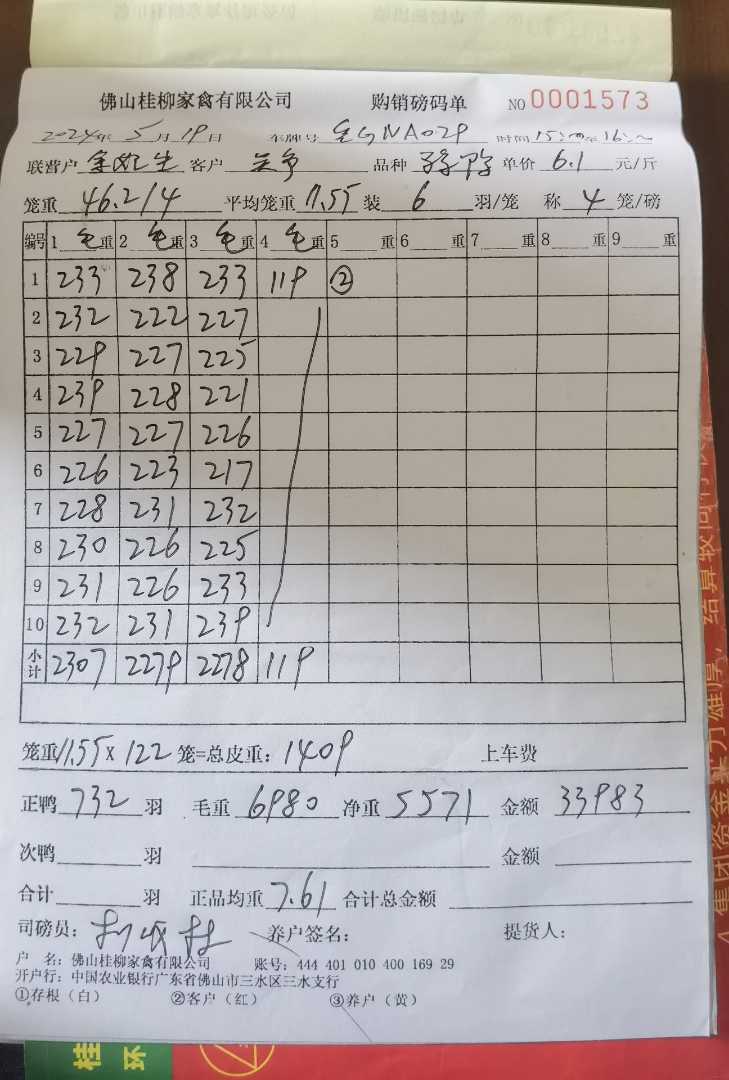 佛山桂柳家禽有限公司 购销磅码单 NO 0001573
2024年 5月 19日 车牌号 NA029 时间 15:
联营户 客户 品种 单价 6.1 元/斤
笼重 46.2/4 平均笼重 11.55 装 6 羽/笼 称 4 笼/磅
编号 1 毛重 2 毛重 3 毛重 4 毛重 5 重 6 重 7 重 8 重 9 重
1 233 238 233 119 ②
2 232 222 227
3 229 227 225
4 239 228 221
5 227 227 226
6 226 223 217
7 228 231 232
8 230 226 225
9 231 226 233
10 232 231 239
小计 2307 2279 2278 119
笼重 11.55 x 122 笼=总皮重: 1409 上车费
正鸭 732 羽 毛重 6980 净重 5571 金额 33983
次鸭 羽 金额
合计 羽 正品均重 7.61 合计总金额
司磅员: 养户签名: 提货人:
户 名: 佛山桂柳家禽有限公司 账号: 444 401 010 400 169 29
开户行: 中国农业银行广东省佛山市三水区三水支行
①存根（白） ②客户（红） ③养户（黄）
桂
环